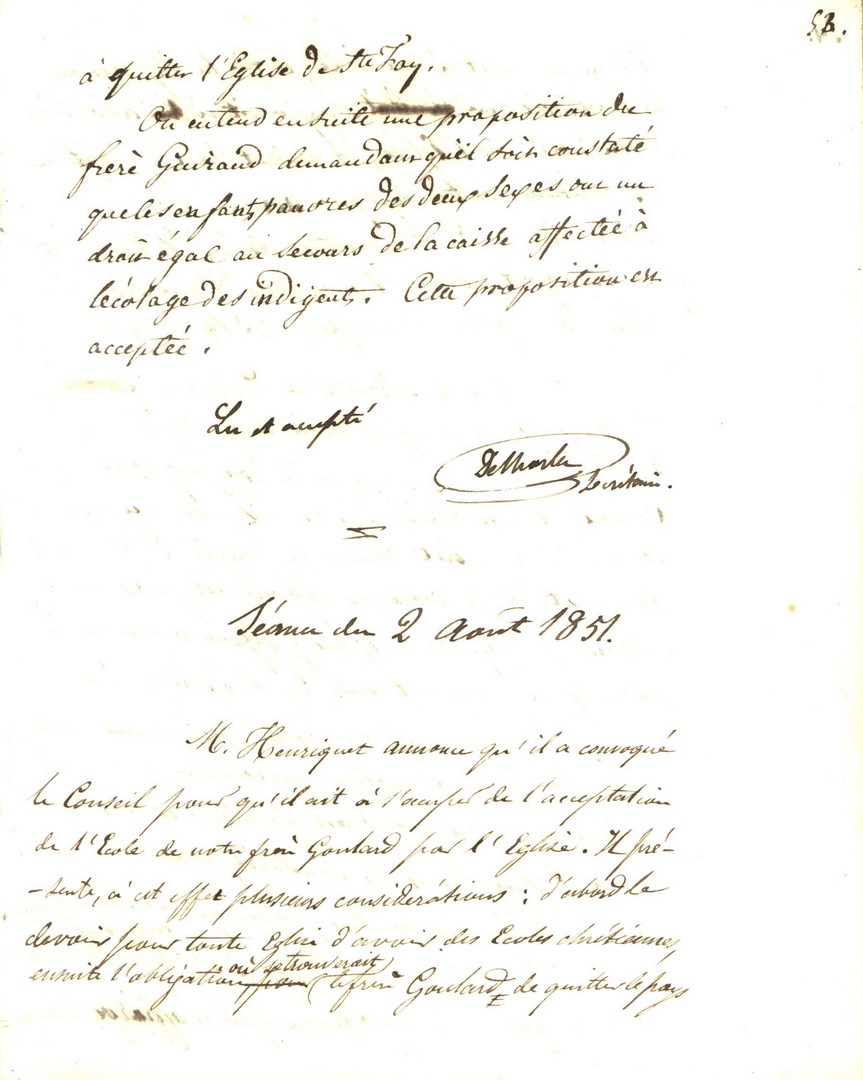 53.
à quitter l'Eglise de Ste Foy.
On entend ensuite une proposition du
frerè Guiraud demandant qu'eil soit constaté
que les enfants pauvres des deux sexes ont un
droit égal au secours de la caisse affectée à
lécolage des indigents. Cette proposition est
acceptée.
Lu et accepté
Secrétaire.
Séance du 2 Août 1851.
M. Henriquet annonce qu'il a convoqué
le Conseil pour qu'il ait à s'occuper de l'acceptation
de l'Ecole de notre frère Goulard par l'Eglise. Il pré-
-sente, à cet effet plusieurs considérations : d'abord le
devoir pour toute Eglise d'avoir des Ecoles chrétiennes,
ensuite l'obligation pour où se trouverait le frère Goulard, de quitter le pays